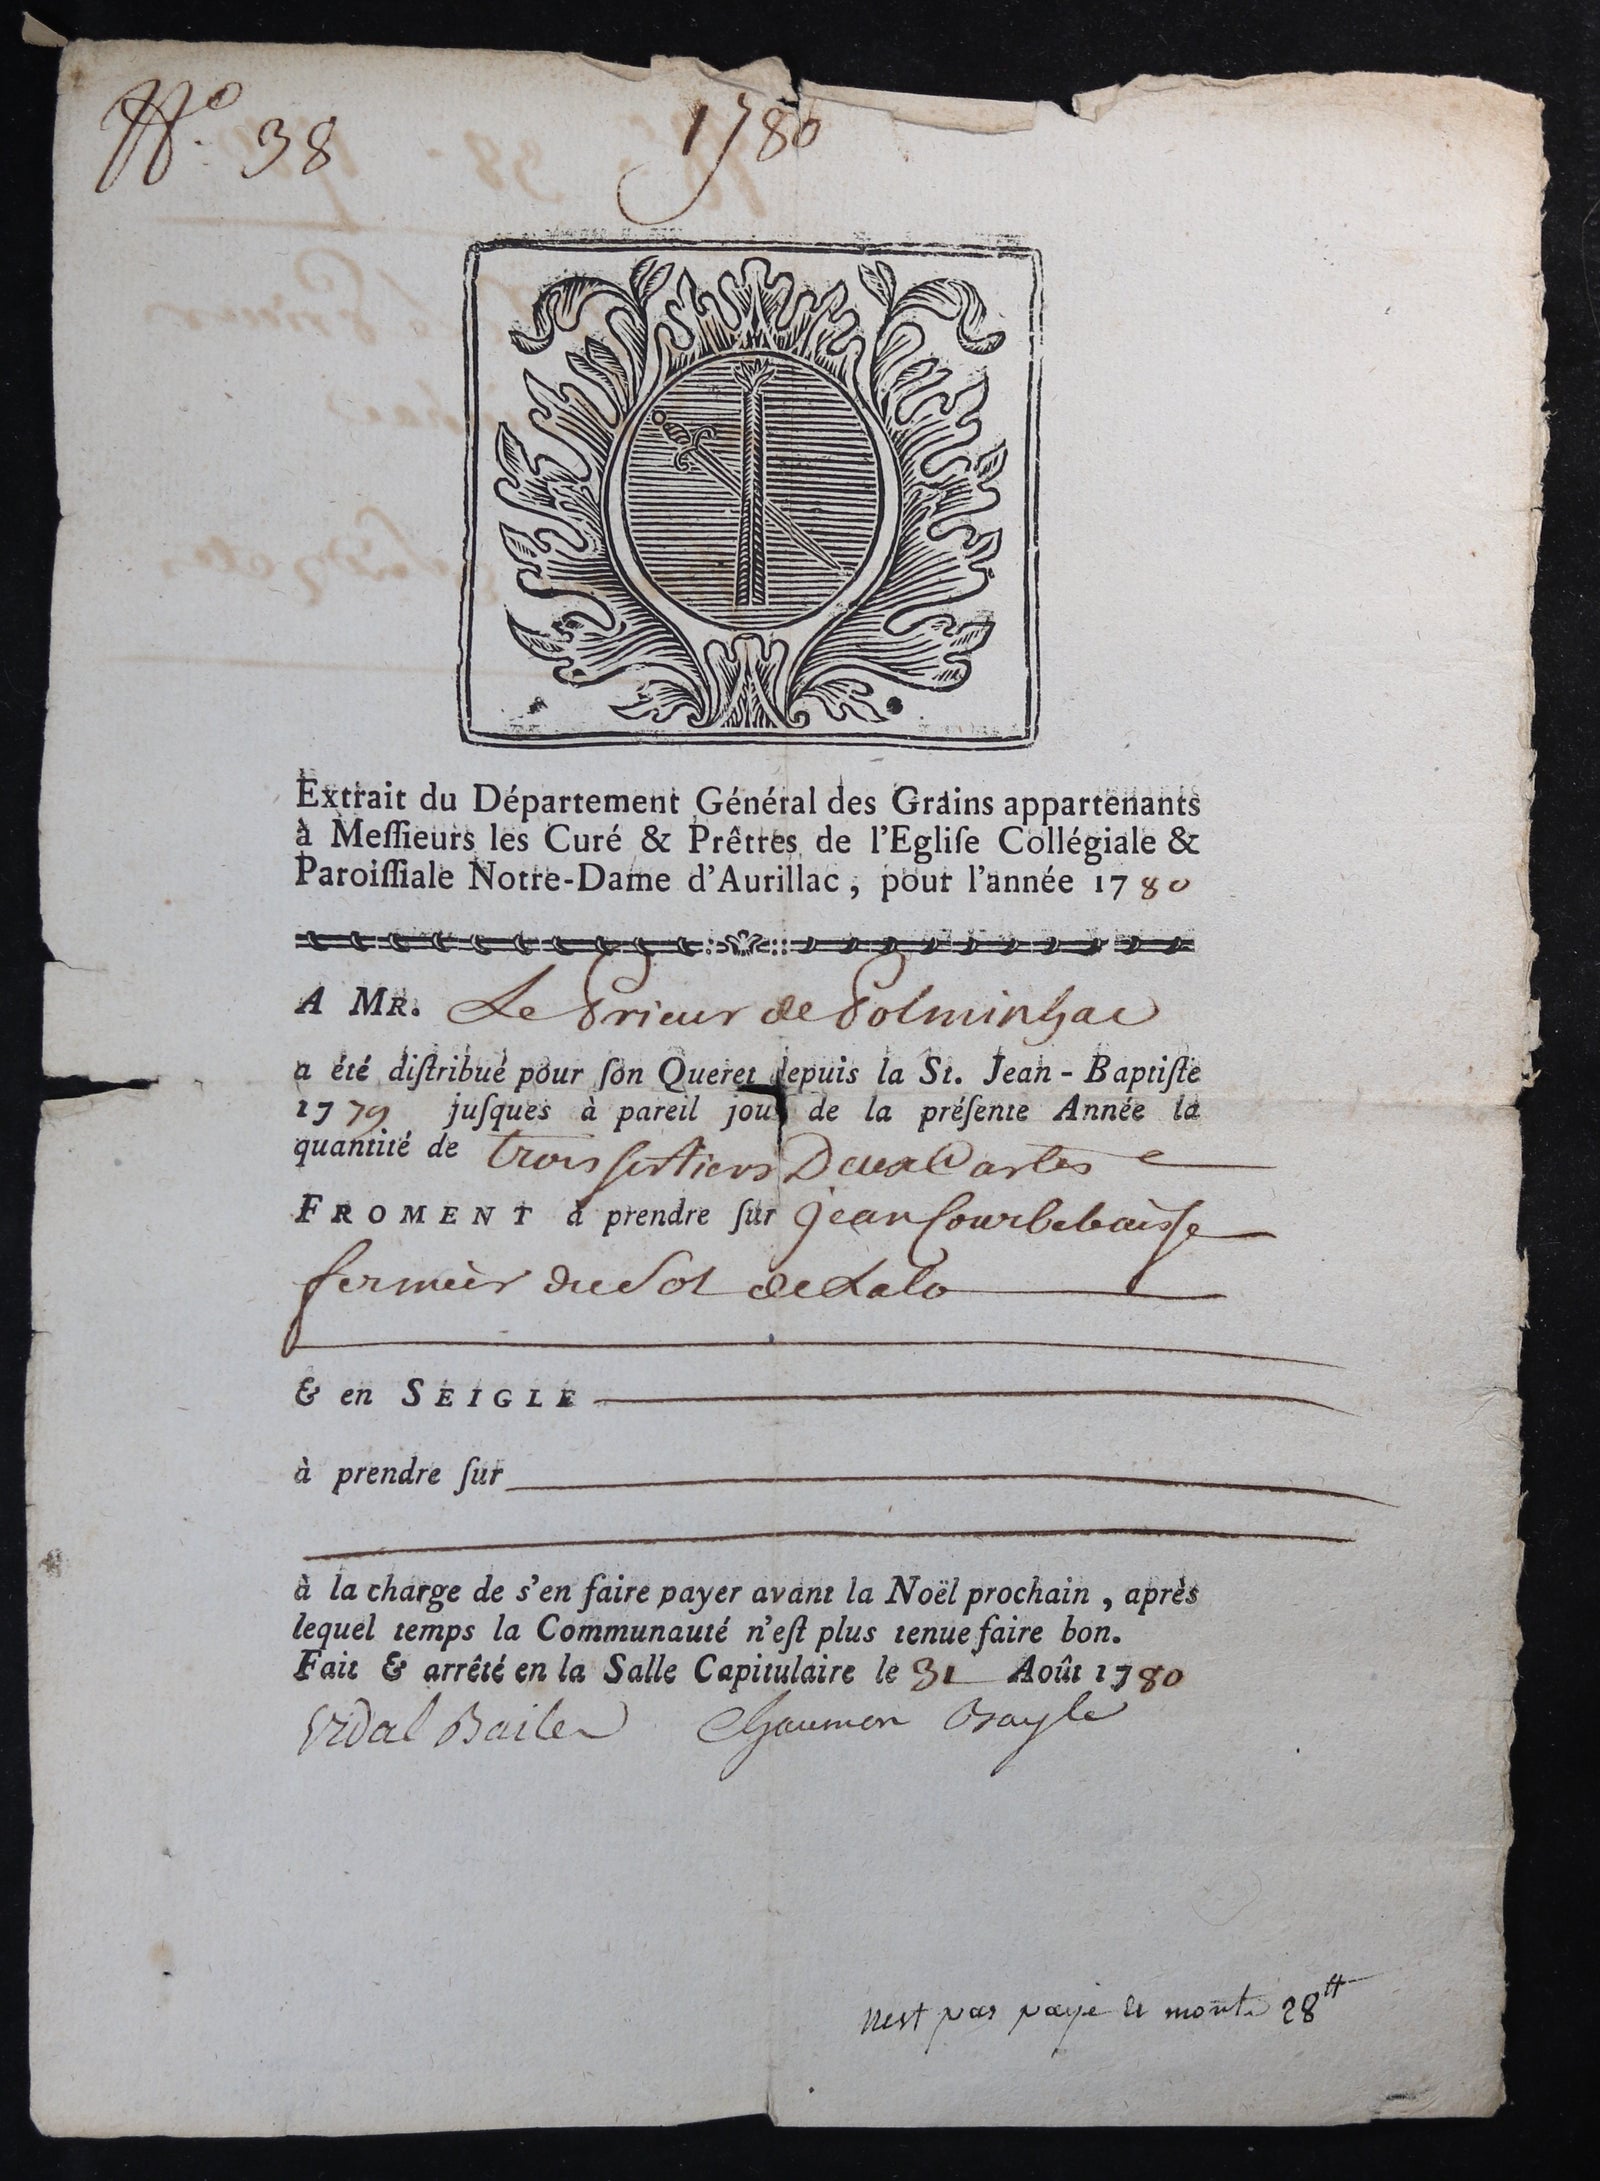 N.º 38
1780
Extrait du Département Général des Grains appartenants
à Meſſieurs les Curé & Prêtres de l'Egliſe Collégiale &
Paroiſſiale Notre-Dame d'Aurillac, pour l'année 1780
A MR. Le Prieur de Polminhac
a été diſtribué pour ſon Queret depuis la St. Jean-Baptiſte
1779 juſques à pareil jour de la préſente Année la
quantité de trois septiers Deux Cartes
FROMENT à prendre ſur jean Courbebaisse
fermier du Sol de Lalo
& en SEIGLE
à prendre ſur
à la charge de s'en faire payer avant la Noël prochain, après
lequel temps la Communauté n'eſt plus tenue faire bon.
Fait & arrêté en la Salle Capitulaire le 31 Août 1780
Vidal Baile Chaumon Bayle
nest pas payé et monte 28 ₶